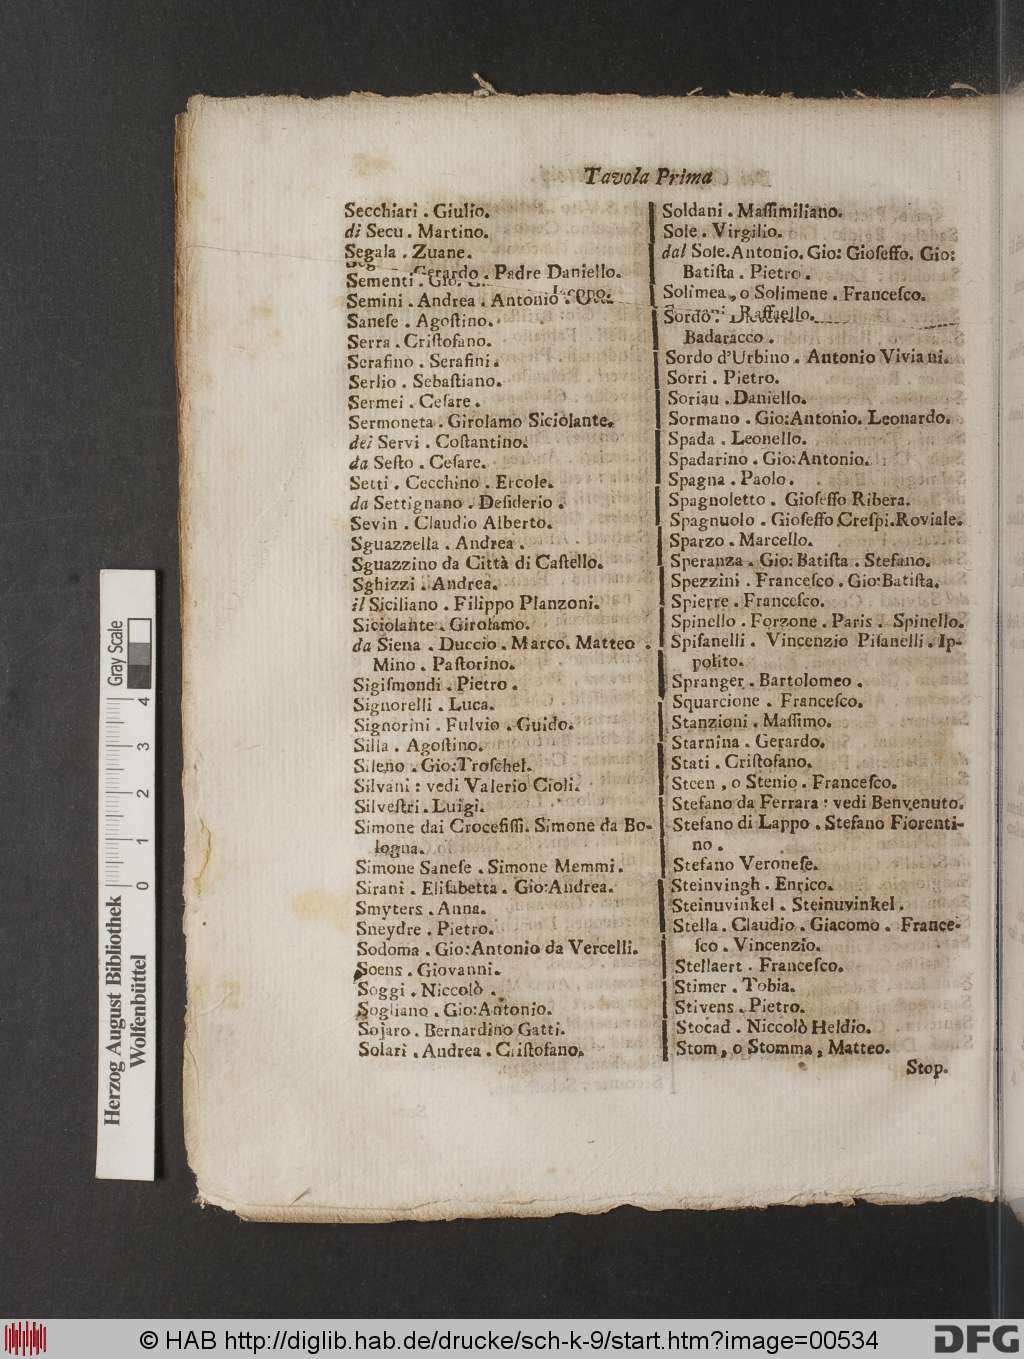 Tavola Prima
Secchiari . Giulio.
di Secu . Martino.
Segala . Zuane.
Gerardo . Padre Daniello.
Sementi . Gio.
Semini . Andrea . Antonio .
Saneſe . Agoſtino.
Serra . Criſtofano.
Serafino . Serafini .
Serlio . Sebaſtiano.
Sermei . Ceſare .
Sermoneta . Girolamo Siciolante.
dei Servi . Coſtantino.
da Seſto . Ceſare.
Setti . Cecchino . Ercole.
da Settignano . Deſiderio .
Sevin . Claudio Alberto.
Sguazzella . Andrea .
Sguazzino da Città di Caſtello.
Sghizzi . Andrea.
il Siciliano . Filippo Planzoni.
Siciolante . Girolamo.
da Siena . Duccio . Marco. Matteo .
Mino . Paſtorino.
Sigiſmondi . Pietro .
Signorelli . Luca.
Signorini . Fulvio . Guido.
Silla . Agoſtino.
Sileno . Gio:Troſchel.
Silvani : vedi Valerio Cioli.
Silveſtri . Luigi.
Simone dai Crocefiſſi. Simone da Bo-
logna.
Simone Saneſe . Simone Memmi .
Sirani . Eliſabetta . Gio:Andrea.
Smyters . Anna.
Sneydre . Pietro.
Sodoma . Gio:Antonio da Vercelli.
Soens . Giovanni.
Soggi . Niccolò .
Sogliano . Gio:Antonio.
Sojaro . Bernardino Gatti.
Solari . Andrea . Criſtofano.
Soldani . Maſſimiliano.
Sole . Virgilio.
dal Sole. Antonio. Gio: Gioſeffo. Gio:
Batiſta . Pietro .
Solimea, o Solimene . Franceſco.
Sordo . Raffaello.
Badaracco .
Sordo d'Urbino . Antonio Viviani.
Sorri . Pietro.
Soriau . Daniello.
Sormano . Gio:Antonio. Leonardo.
Spada . Leonello.
Spadarino . Gio:Antonio.
Spagna . Paolo.
Spagnoletto . Gioſeffo Ribera.
Spagnuolo . Gioſeffo Creſpi. Roviale.
Sparzo . Marcello.
Speranza . Gio: Batiſta . Stefano.
Spezzini . Franceſco . Gio:Batiſta.
Spierre . Franceſco.
Spinello . Forzone . Paris . Spinello.
Spiſanelli . Vincenzio Piſanelli . Ip-
polito.
Spranger . Bartolomeo .
Squarcione . Franceſco.
Stanzioni . Maſſimo.
Starnina . Gerardo.
Stati . Criſtofano.
Steen , o Stenio . Franceſco.
Stefano da Ferrara : vedi Benvenuto.
Stefano di Lappo . Stefano Fiorenti-
no .
Stefano Veroneſe.
Steinvingh . Enrico.
Steinuvinkel . Steinuvinkel .
Stella . Claudio . Giacomo . France-
ſco . Vincenzio.
Stellaert . Franceſco.
Stimer . Tobia.
Stivens . Pietro.
Stocad . Niccolò Heldio.
Stom , o Stomma , Matteo.
Stop.
Herzog August Bibliothek
Wolfenbüttel
Gray Scale
0 1 2 3 4
© HAB http://diglib.hab.de/drucke/sch-k-9/start.htm?image=00534
DFG